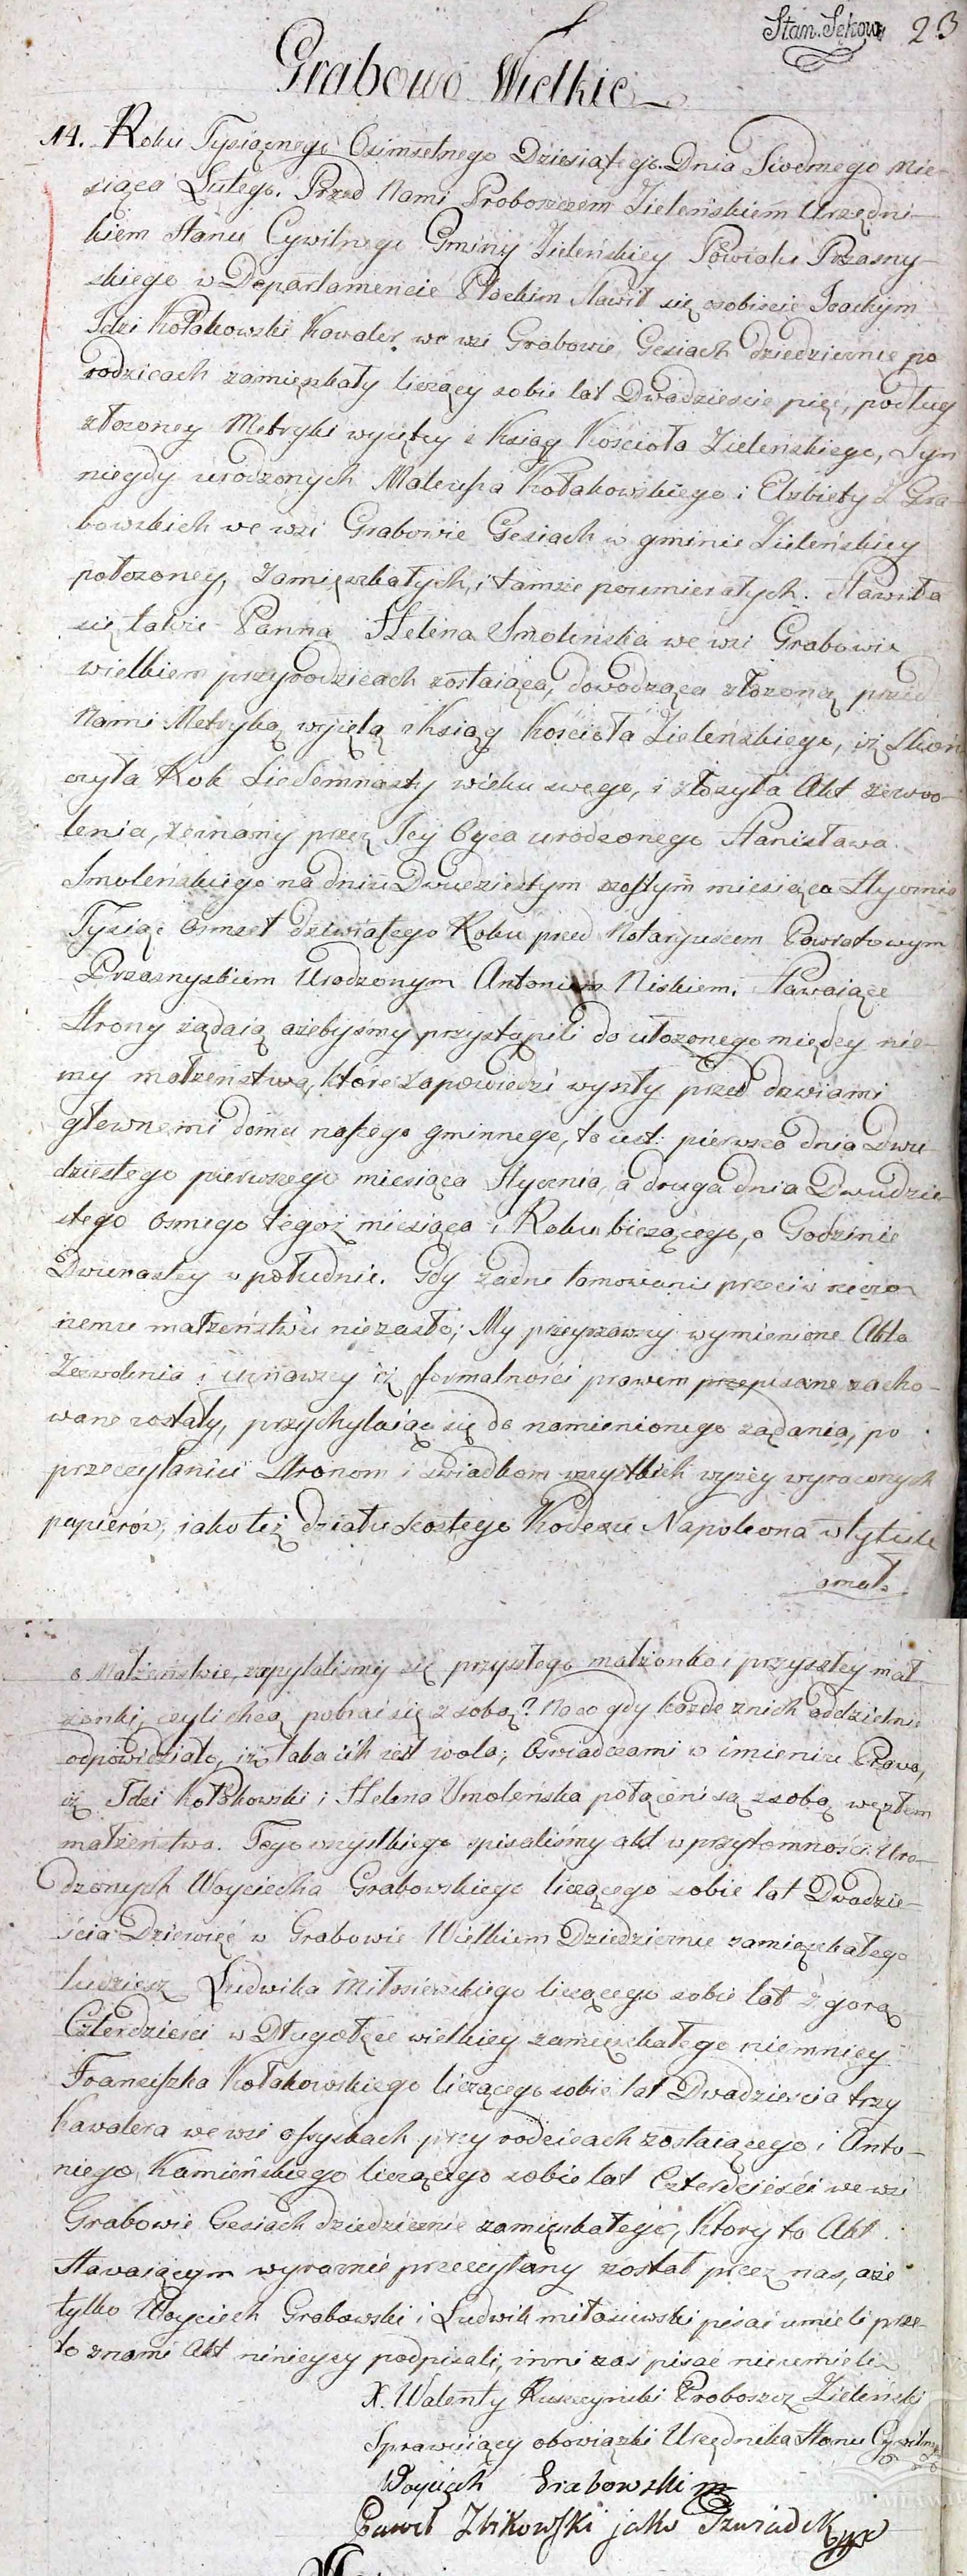 Stan. Sękow 23
Grabowo Wielkie
14. Roku Tysiącnego Osimsetnego Dziesiątego Dnia Siodmego Mie-
siąca Lutego. Przed Nami Proboszczem Zieleńskiem Urzędni-
kiem Stanu Cywilnego Gminy Zieleńskiey Powiatu Przasny-
skiego w Departamencie Płockim Stawił się osobiscie Joachym
Idzi Kołakowski Kawaler we wsi Grabowie Gęsiach dziedzicznie po
rodzicach zamięszkały liczący sobie lat Dwadziescie pięć, podług
złozoney Metryki wyiętey z Ksiąg Kościoła Zieleńskiego, Syn
niegdy urodzonych Mateusza Kołakowskiego i Elzbiety z Gra-
bowskich we wsi Grabowie Gesiach w gminie Zieleńskiey
położoney, zamięszkałych, i tamże poumierałych. Stawiła
się także Panna Helena Smoleńska we wsi Grabowie
wielkiem przy rodzicach zostaiąca, dowodząca złożoną przed
Nami Metryką wyiętą z Ksiąg Kościoła Zielenskiego, iż Skoń-
czyła Rok Siedemnasty wieku swego, i złożyła Akt zezwo-
lenia, zeznany przez Jey Oyca urodzonego Stanisława
Smoleńskiego na dniu Dwudziestym szostym miesiąca Stycznia
Tysiąc Osmset dziwiątego Roku przed Notaryuszem Powiatowym
Przasnyskiem Urodzonym Antonim Niskiem. Stawaiące
Strony żądaią ażebyśmy przystąpili do ułożonego między nie-
my małżeństwa, ktore zapowiedzi wyszły przed drzwiami
głewnemi domu naszego gminnego, to iest: pierwsza dnia Dwu-
dziestego pierwszego miesiąca Stycznia, a druga dnia Dwudzie-
stego osmego tegoż miesiąca i Roku bieżącego, o Godzinie
Dwunastey w południe. Gdy żadne tamowanie przeciw rzeczo-
nemu małżeństwu nie zaszło; My przeyrzawszy wymienione Akta
Zezwolenia i uznawszy iż formalności prawem przepisane zacho-
wane zostały, przychylaiąc się do namienionego ządania, po
przeczytaniu Stronom i świadkom wszystkich wyżey wyrażonych
papierów, iako też działu szostego Kodexu Napoleona w tytule
o małż.
o Małżeństwie, zapytaliśmy się przyszłego małżonka i przyszłey mał-
żonki, czyli chcą pobrać się z sobą? Na co gdy każde z nich oddzielnie
odpowiedziało, iż taka ich iest wola; Oświadczamy w imieniu Prawa,
iż Idzi Kołakowski i Helena Smoleńska połączeni są z sobą węzłem
małżeństwa. Tego wszystkiego spisaliśmy akt w przytomności Uro-
dzonych Woyciecha Grabowskiego liczącego sobie lat Dwadzie-
ścia Dziewięć w Grabowie Wielkiem Dziedzicznie zamięszkałego
tudziesz Ludwika Miłosiewskiego liczącego sobie lat z gorą
Czterdziesci w Długołęce wielkiey zamięszkałego niemniey
Franciszka Kołakowskiego liczącego sobie lat Dwadziescia trzy
Kawalera we wsi Ossyskach przy rodzicach zostaiącego i Anto-
niego Kamieńskiego liczącego sobie lat Czterdzieści we wsi
Grabowie Gesiach dziedzicznie zamięszkałego, Ktory to Akt
Stawaiącym wyraznie przeczytany został przez nas, a że
tylko Woyciech Grabowski i Ludwik miłosiewski pisać umieli prze-
to z nami Akt ninieyszy podpisali, inni zas pisać nieumieli
X. Walenty Ruszczyński Proboszcz Zieleński
Sprawuiący obowiązki Urzędnika Stanu Cywilnego
Woyciech Grabowski
Paweł Zbikowski jako Szwiadek